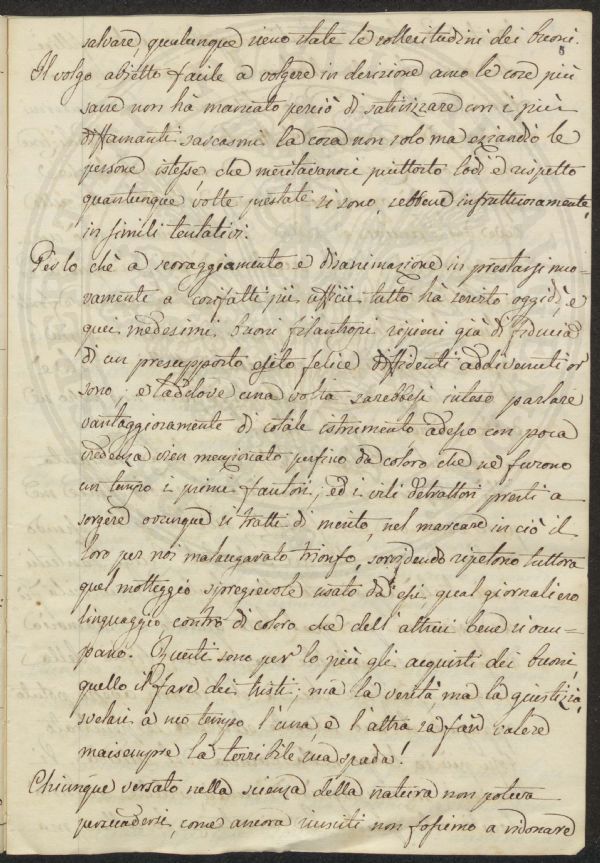 salvare, qualunque sieno state le sollecitudini dei buoni.
8
Il volgo abjetto facile a volgere in derisione anco le cose più
sacre non hà mancato perciò di satirizzare con i più
diffamanti sarcasmi la cosa non solo ma eziandìo le
persone istesse che meritavansi piuttosto lodi e rispetto
quantunque volte prestate si sono, sebbene infruttuosamente,
in simili tentativi.
Per lo chè a scoraggiamento e disanimazione in prestarsi nuo-
vamente a cosifatti pii ufficii tutto hà servito oggidì, e
quei medesimi buoni filantropi ripieni già di fiducia
di un presupposto esito felice diffidenti addivenuti or
sono; e laddove una volta sarebbesi inteso parlare
vantaggiosamente di cotale istrumento, adesso con poca
credenza vien menzionato perfino da coloro che ne furono
un tempo i primi fautori; ed i vili detrattori pronti a
sorgere ovunque si tratti di merito, nel marcare in ciò il
loro per noi malaugurato trionfo, sorridendo ripetono tuttora
quel motteggio spregievole usato da essi qual giornaliero
linguaggio contro di coloro che dell'altrui bene si occu-
pano. Questi sono per lo più gli acquisti dei buoni,
quello il fare dei tristi; ma la verità ma la giustizia
svelasi a suo tempo, l'una e l'altra sa far valere
maisempre la terribile sua spada!
Chiunque versato nella scienza della natura non poteva
persuadersi, come ancora riusciti non fossimo a ridonare